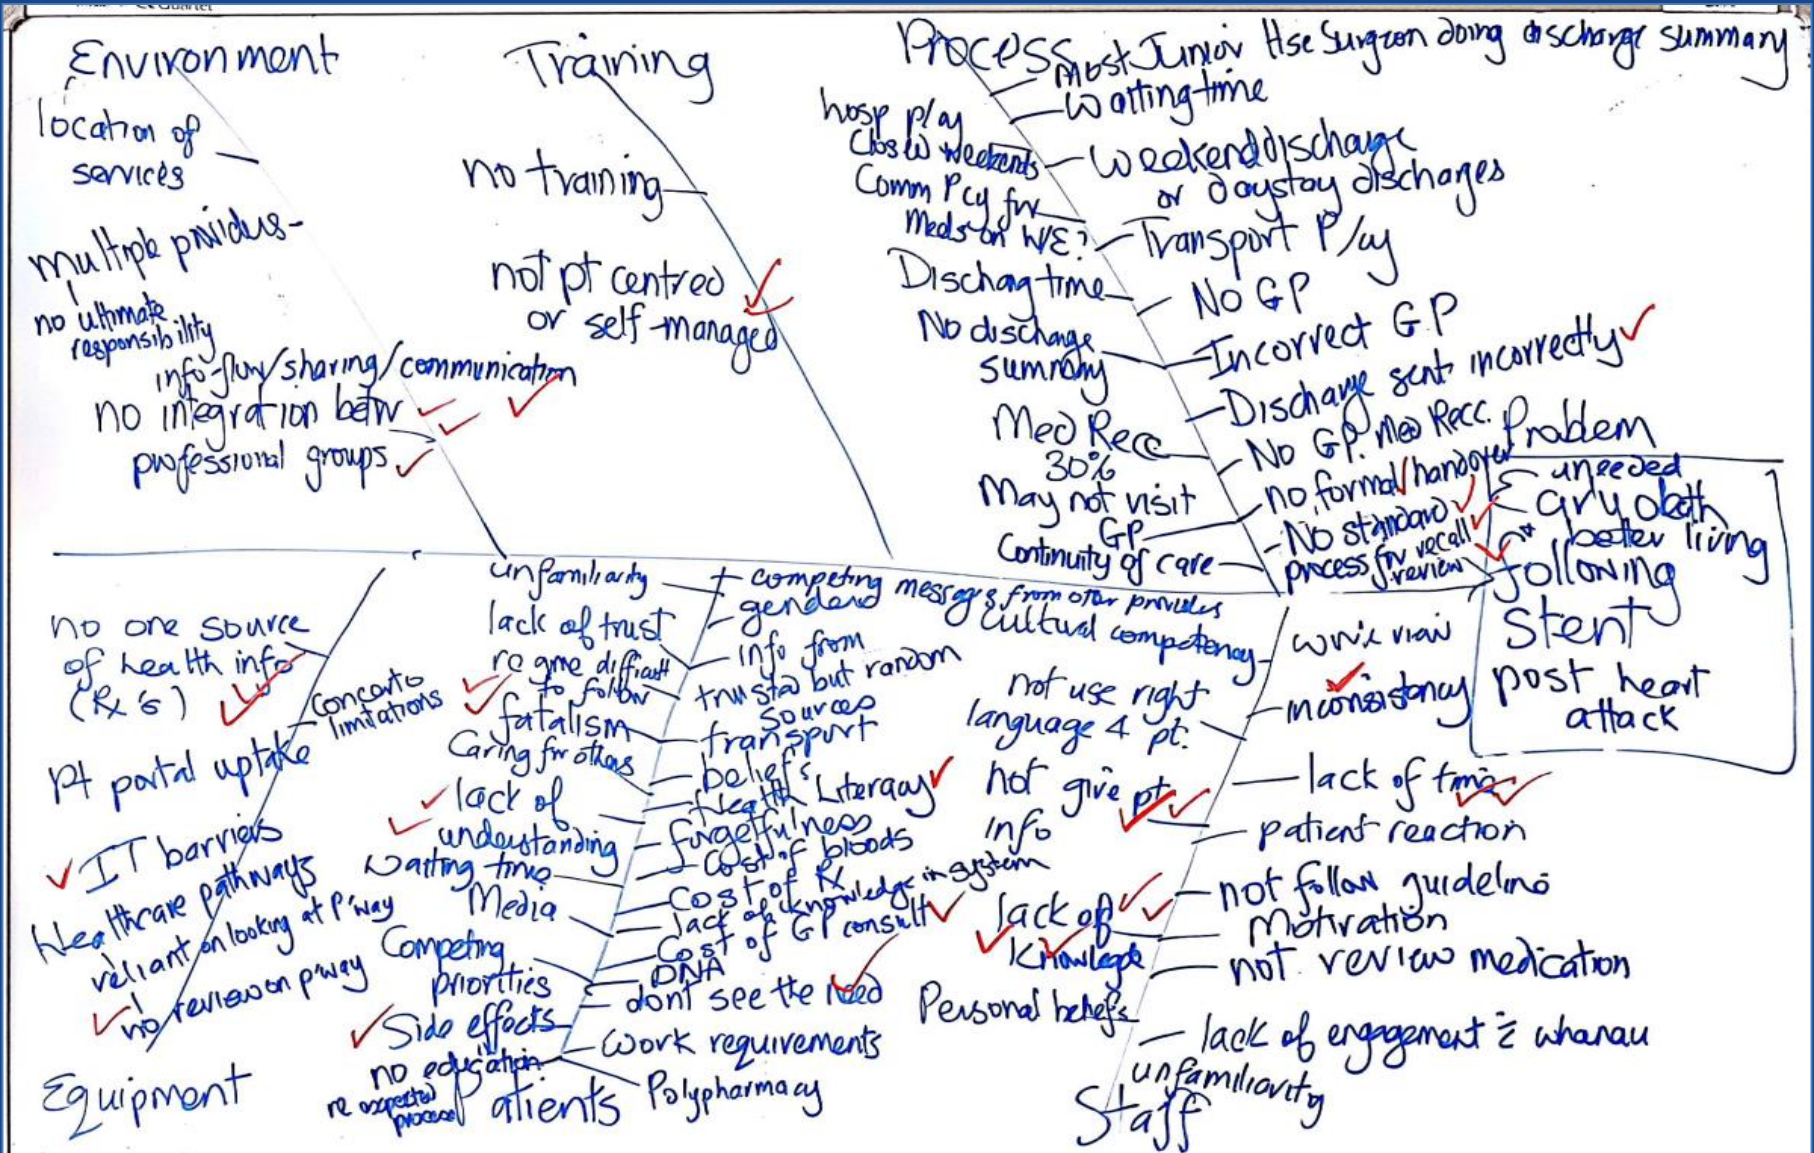 Environment
location of
services
multiple providers
no ultimate
responsibility
info flow/sharing/communication
no integration betw
professional groups
Training
no training
not pt centred
or self-managed
Process
Most Junior Hse Surgeon doing discharge summary
Waiting time
hosp p/cy
Closed weekends
Weekend discharge
or daystay discharges
Comm Pcy for
Meds on W/E?
Transport P/cy
Discharg time
No GP
No discharge
summary
Incorrect GP
Discharge sent incorrectly
Med Recc
30%
No GP. Med Recc.
May not visit
GP
no formal handover
Continuity of care
No standard
process for recall
review
Problem
uneeded
early death
better living
following
Stent
post heart
attack
no one source
of health info
(Rx's)
Concerto
limitations
Pt portal uptake
IT barriers
Healthcare pathways
reliant on looking at p'way
no review on p'way
Equipment
unfamiliarity
lack of trust
regime difficult
to follow
fatalism
Caring for others
lack of
understanding
waiting time
Media
Competing
priorities
Side effects
no education
re expected
process
competing messages from other provides
gender
info from
trusted but random
sources
transport
beliefs
Health Literacy
forgetfulness
Cost of bloods
Cost of Rx
lack of knowledge in system
Cost of GP consult
DNA
dont see the need
work requirements
Polypharmacy
Patients
cultural competency
not use right
language 4 pt.
not give pt
info
lack of
knowledge
Personal beliefs
inconsistency
lack of time
patient reaction
not follow guideline
Motivation
not review medication
lack of engagement c̄ whanau
unfamiliarity
Staff